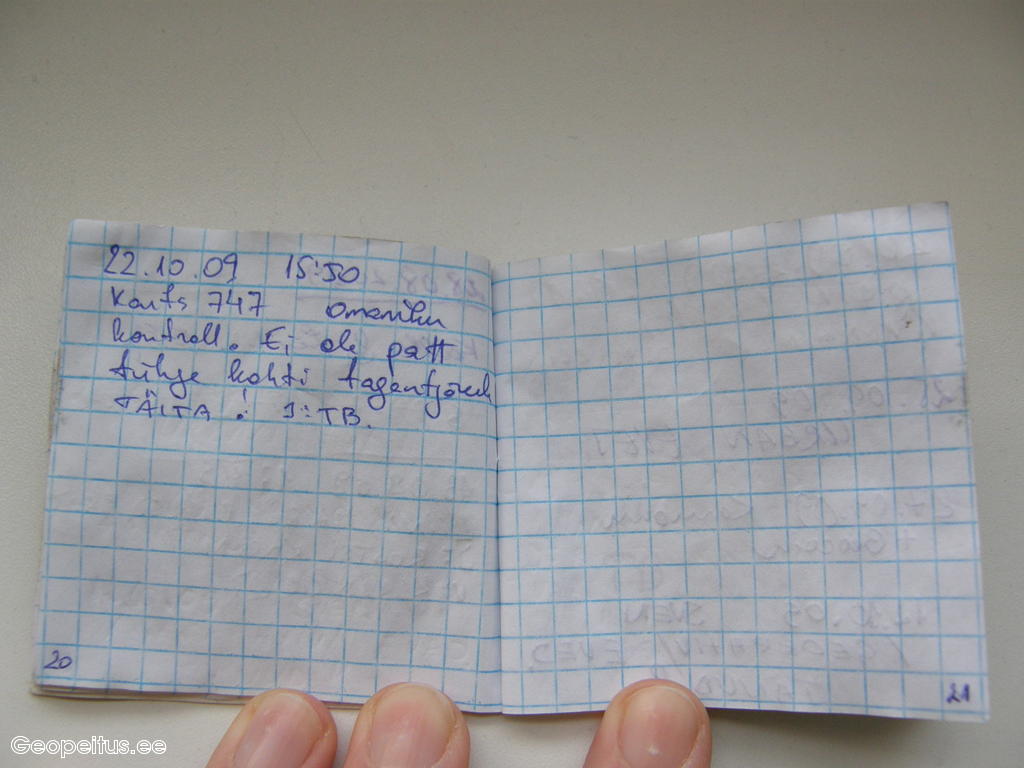 22.10.09 15:50
Konts 747 omaniku
kontroll. Ei ole patt
tühje kohti tagantjärele
TÄITA! 1:TB.
20
21
Geopeitus.ee